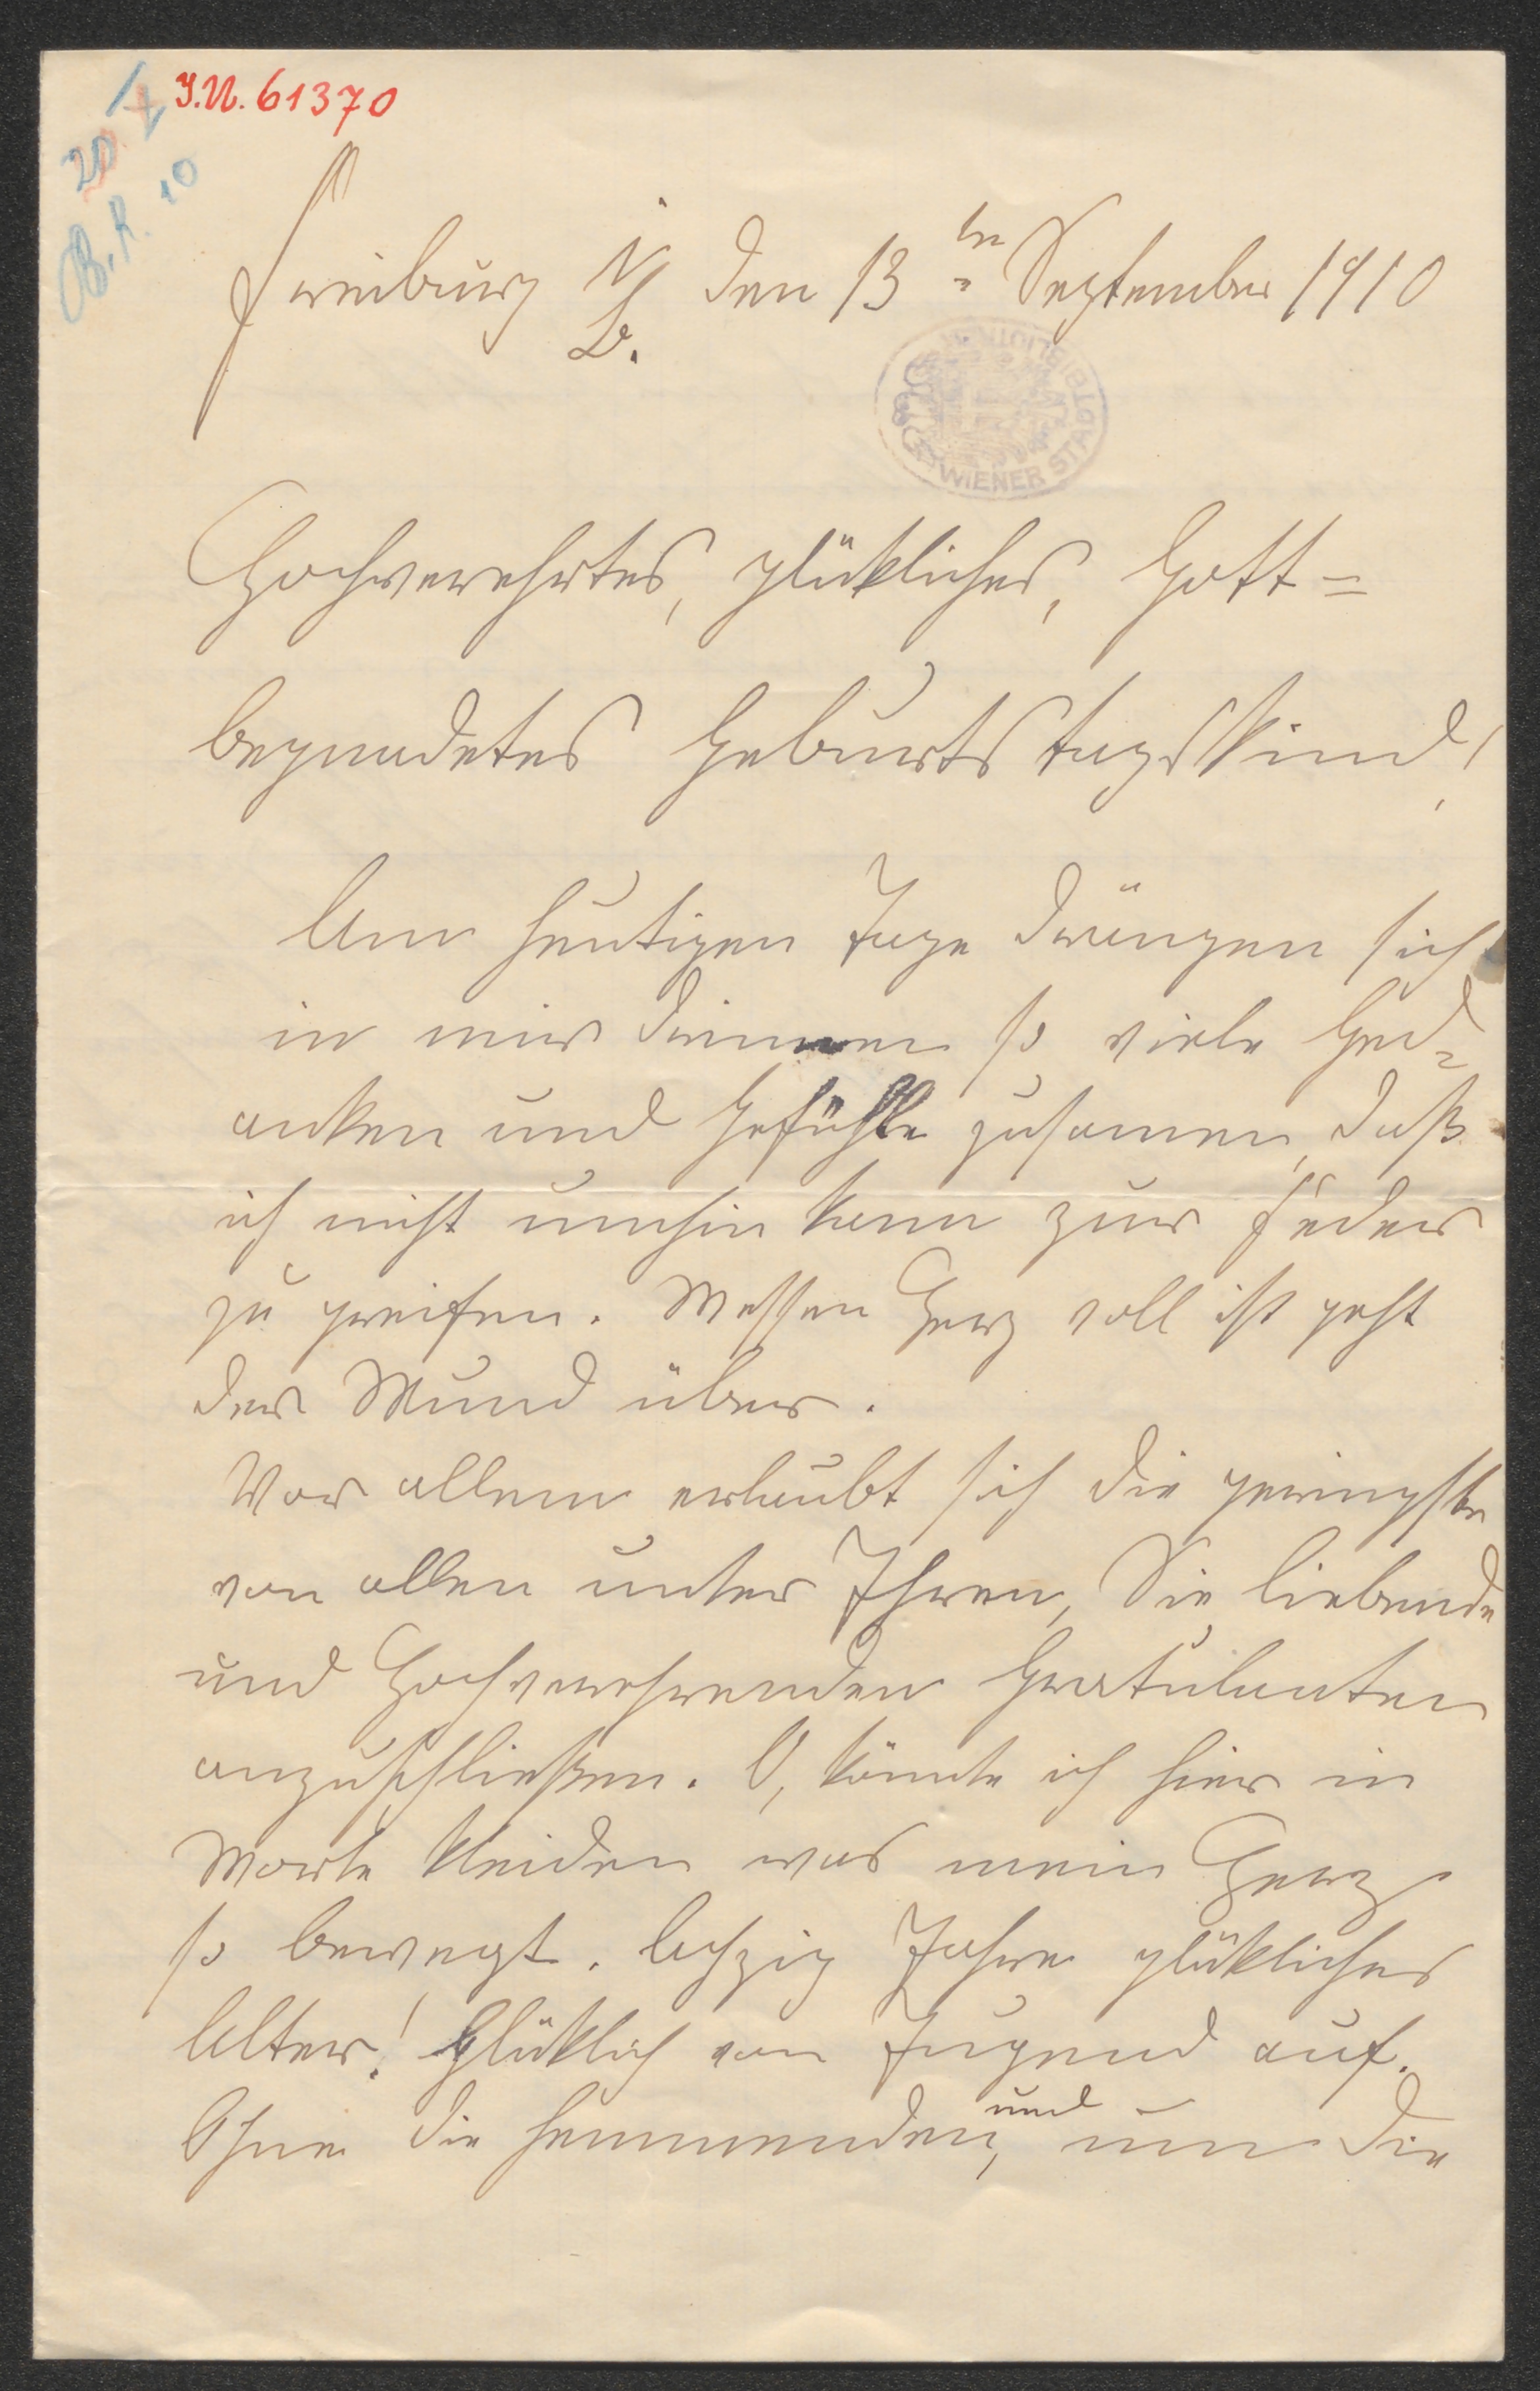 J.N. 61370
20
B. R. 10
Freiburg i/B. den 13ten September 1910
WIENER STADTBIBLIOTHEK
Hochverehrtes, glükliches, Gott=
begnadetes Geburtstagskind!
Am heutigen Tage drängen sich
in mir drinnen so viele Ged=
anken und Gefühle zusamen, daß
ich nicht umhin kann zur Feder
zu greifen. Wessen Herz voll ist geht
der Mund über.
Vor allem erlaubt sich die geringste
von allen unter Ihren, Sie liebende
und Hochverehrenden Gratulanten
anzuschließen. O, könnte ich hier in
Worte kleiden was mein Herz
so bewegt. Achzig Jahre glükliches
Alter! Glüklich von Jugend auf.
Ohne die hemmenden, und um die